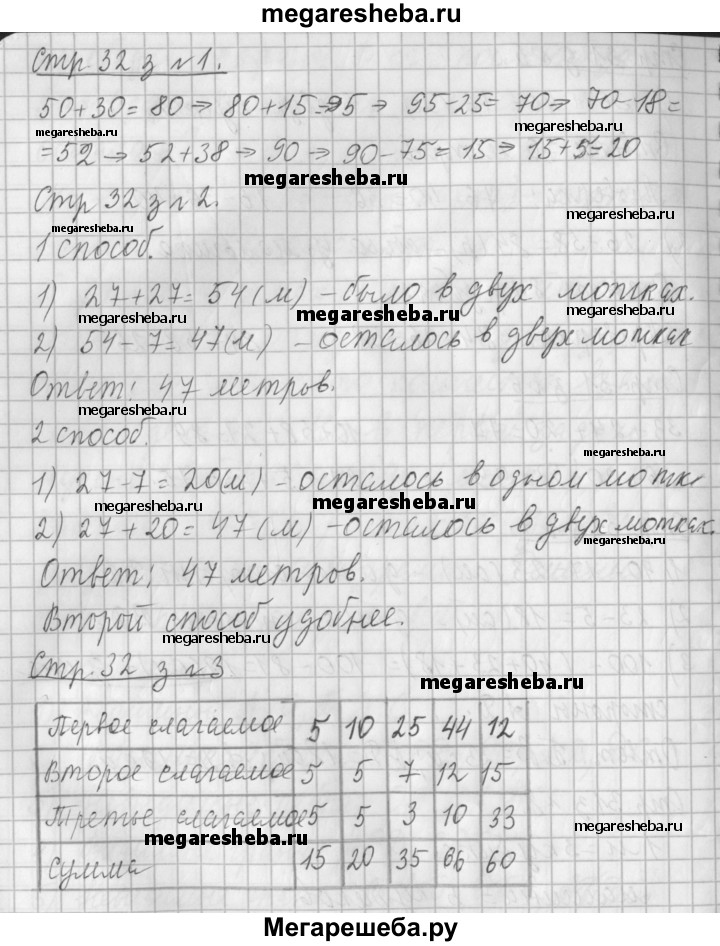 megaresheba.ru
Стр 32 з №1.
50+30=80 → 80+15=95 → 95-25= 70→ 70-18=
megaresheba.ru megaresheba.ru
=52 → 52+38 → 90 → 90-75=15 → 15+5=20
megaresheba.ru
Стр 32 з №2.
megaresheba.ru megaresheba.ru
1 способ.
1) 27+27=54(м) -было в двух мотках.
megaresheba.ru megaresheba.ru megaresheba.ru
2) 54-7=47(м) -осталось в двух мотках
Ответ: 47 метров.
megaresheba.ru megaresheba.ru
2 способ.
megaresheba.ru
1) 27-7=20(м) -осталось в одном мотке
megaresheba.ru megaresheba.ru
2) 27+20=47(м) -осталось в двух мотках.
megaresheba.ru
Ответ: 47 метров.
Второй способ удобнее.
megaresheba.ru
Стр. 32 з №3
megaresheba.ru
Первое слагаемое 5 10 25 44 12
Второе слагаемое 5 5 7 12 15
Третье слагаемое 5 5 3 10 33
megaresheba.ru megaresheba.ru
Сумма 15 20 35 66 60
Мегарешеба.ру